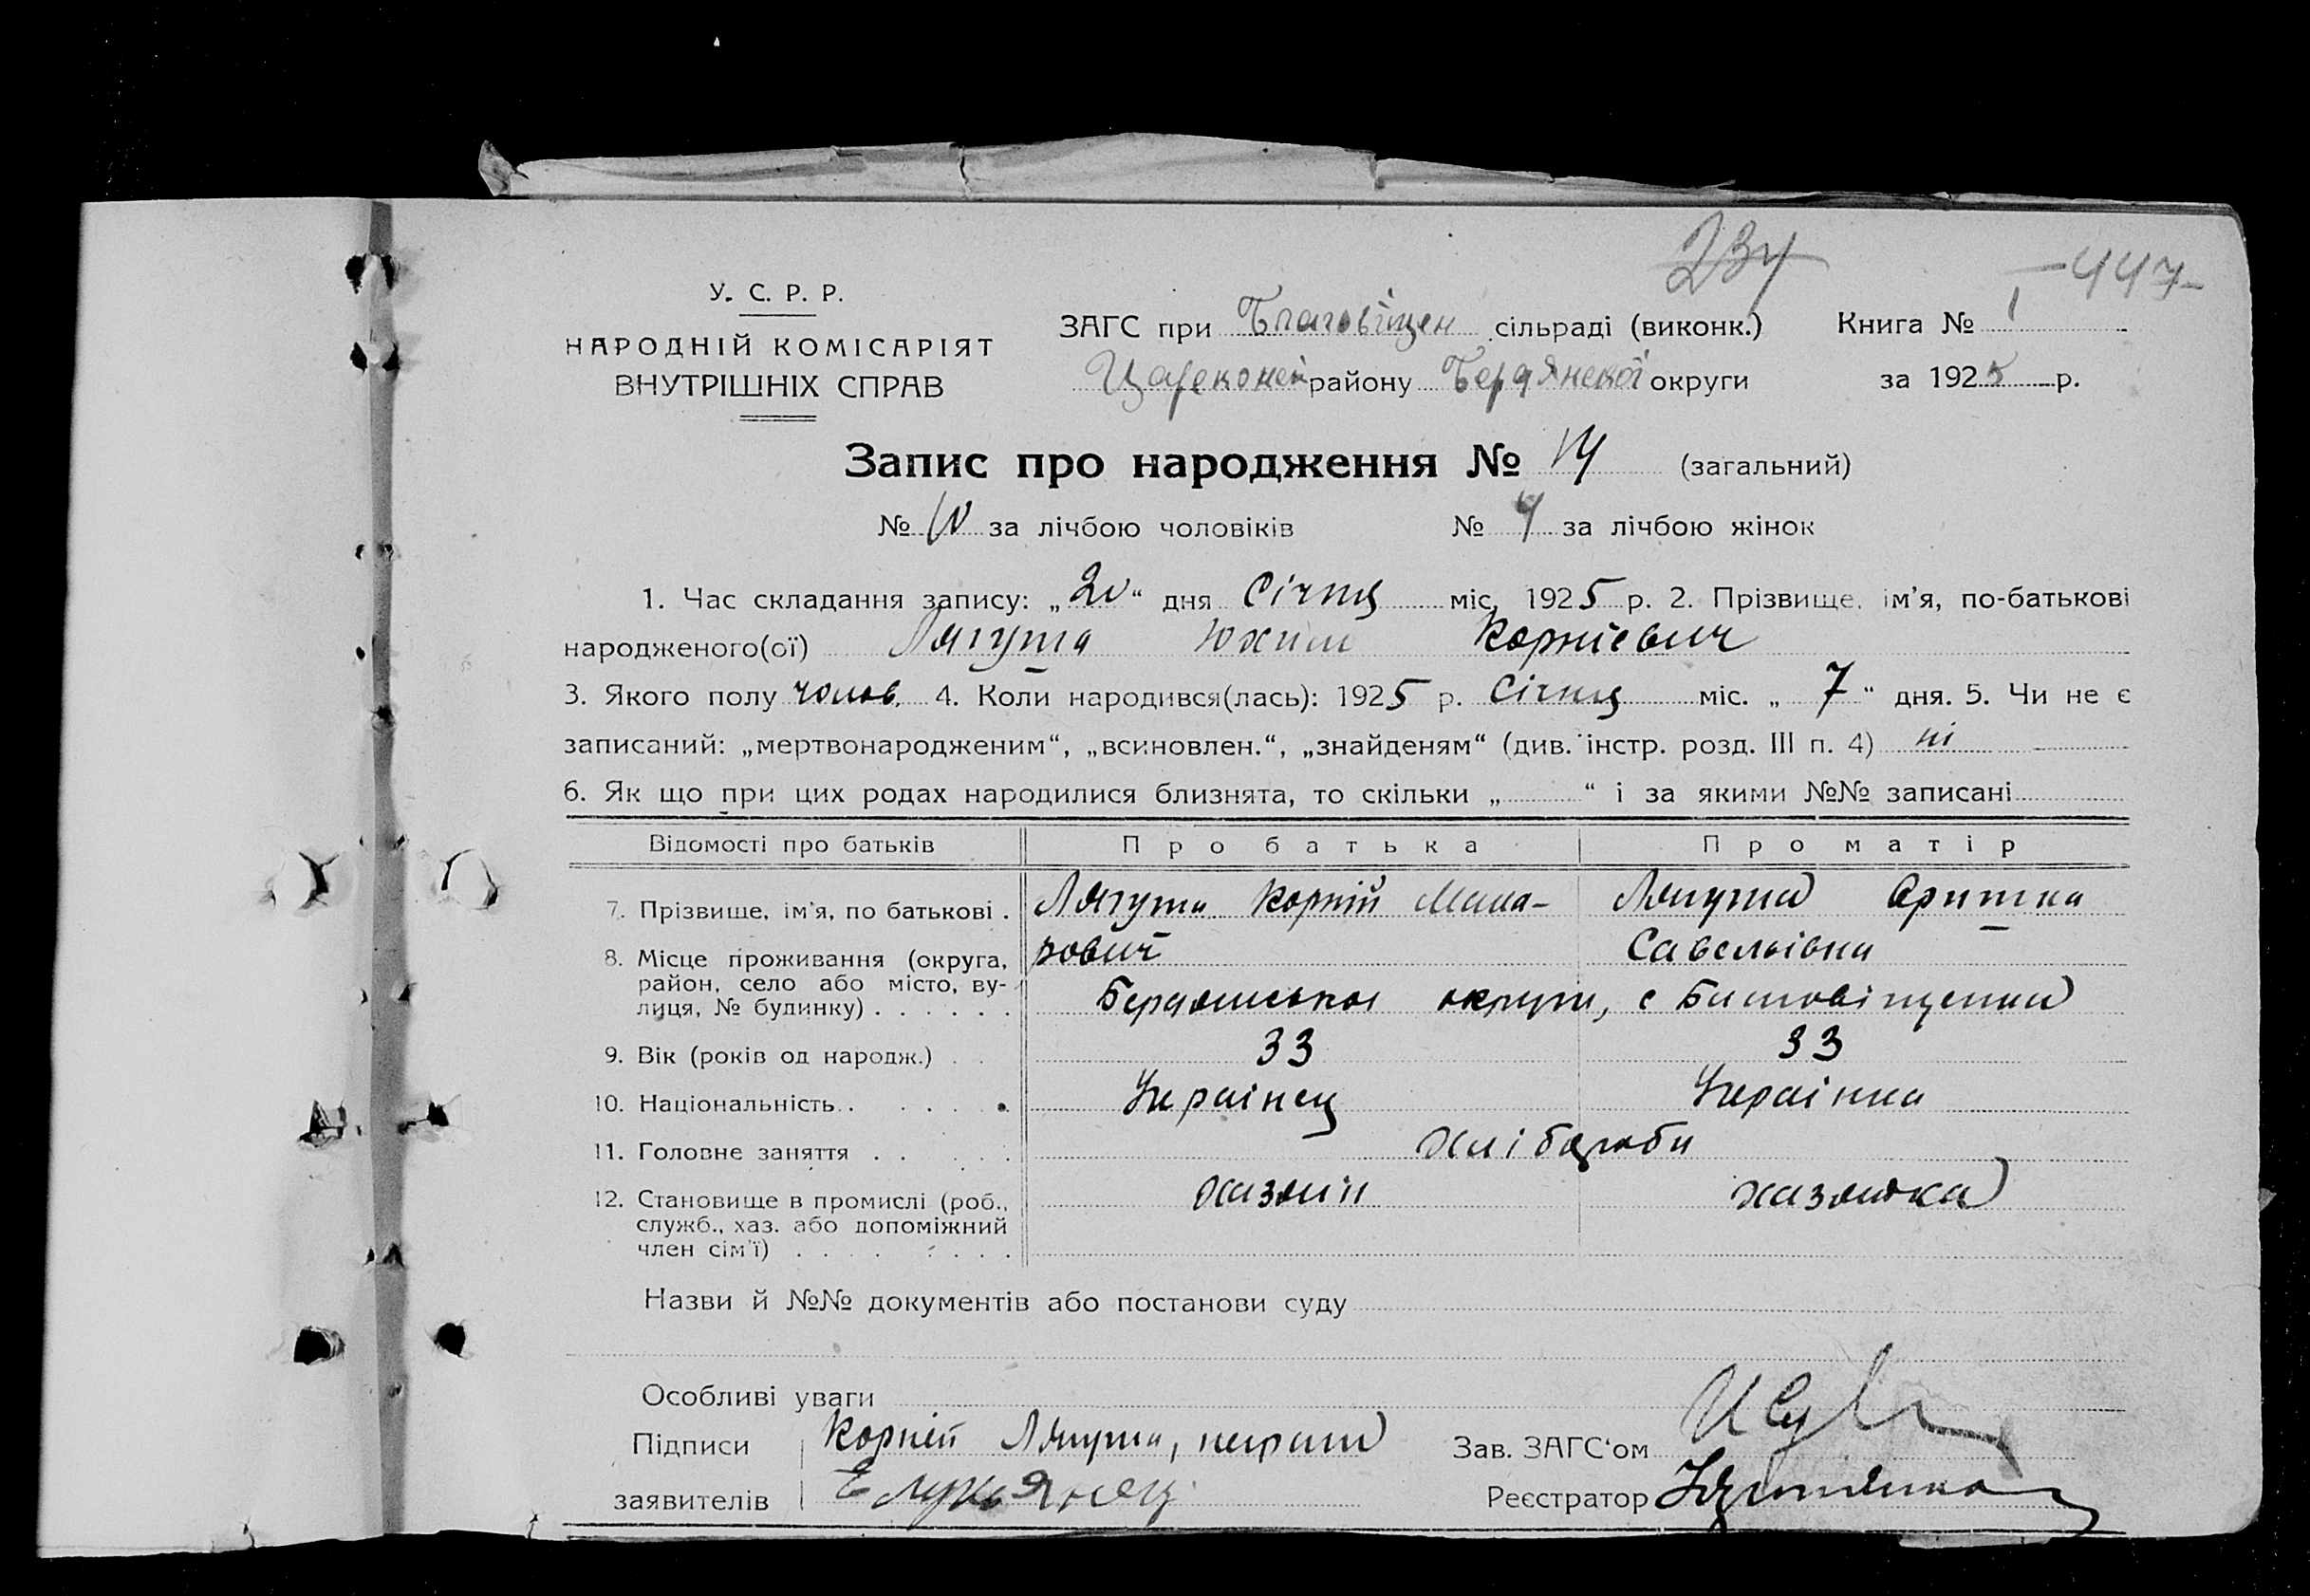 234
– 447 –
У. С. Р. Р.
НАРОДНІЙ КОМІСАРІЯТ
ВНУТРІШНІХ СПРАВ
ЗАГС при Благовіщен сільраді (виконк.) Книга № 1
Цареконс району Бердянскої округи за 1925 р.
Запис про народження № 14 (загальний)
№ 10 за лічбою чоловіків № 4 за лічбою жінок
1. Час складання запису: „20“ дня Січня міс. 1925 р. 2. Прізвище, ім’я, по-батькові
народженого(ої) Лягута Юхим Корнієвич
3. Якого полу чолов. 4. Коли народився(лась): 1925 р. Січня міс. „7“ дня. 5. Чи не є
записаний: „мертвонародженим“, „всиновлен.“, „знайденям“ (див. інстр. розд. III п. 4) ні
6. Як що при цих родах народилися близнята, то скільки „ “ і за якими №№ записані
Відомості про батьків Про батька Про матір
7. Прізвище, ім’я, по батькові . Лягута Корній Мака- Лягута Оришка
рович Савельівна
8. Місце проживання (округа, район, село або місто, вулиця, № будинку) . . . . . . Бердянської округи, с Благовіщенка
9. Вік (років од народж.) . . 33 33
10. Національність . . . . . Українец Українка
11. Головне заняття . . . . . Хлібороби
12. Становище в промислі (роб., служб., хаз. або допоміжний член сім’ї) . . . . . . . хазяїн хазяйка
Назви й №№ документів або постанови суду
Особливі уваги
Підписи Корній Лягута, неграм Зав. ЗАГС‘ом
заявителів Е Лукьянец Реєстратор